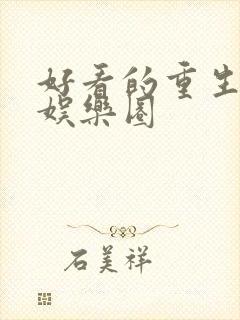 好看的重生
娱乐圈
石美祥